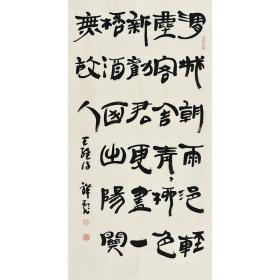 渭城朝雨浥輕
塵客舍青々柳色
新勸君更盡一
桮酒西出陽關
無故人
王維詩